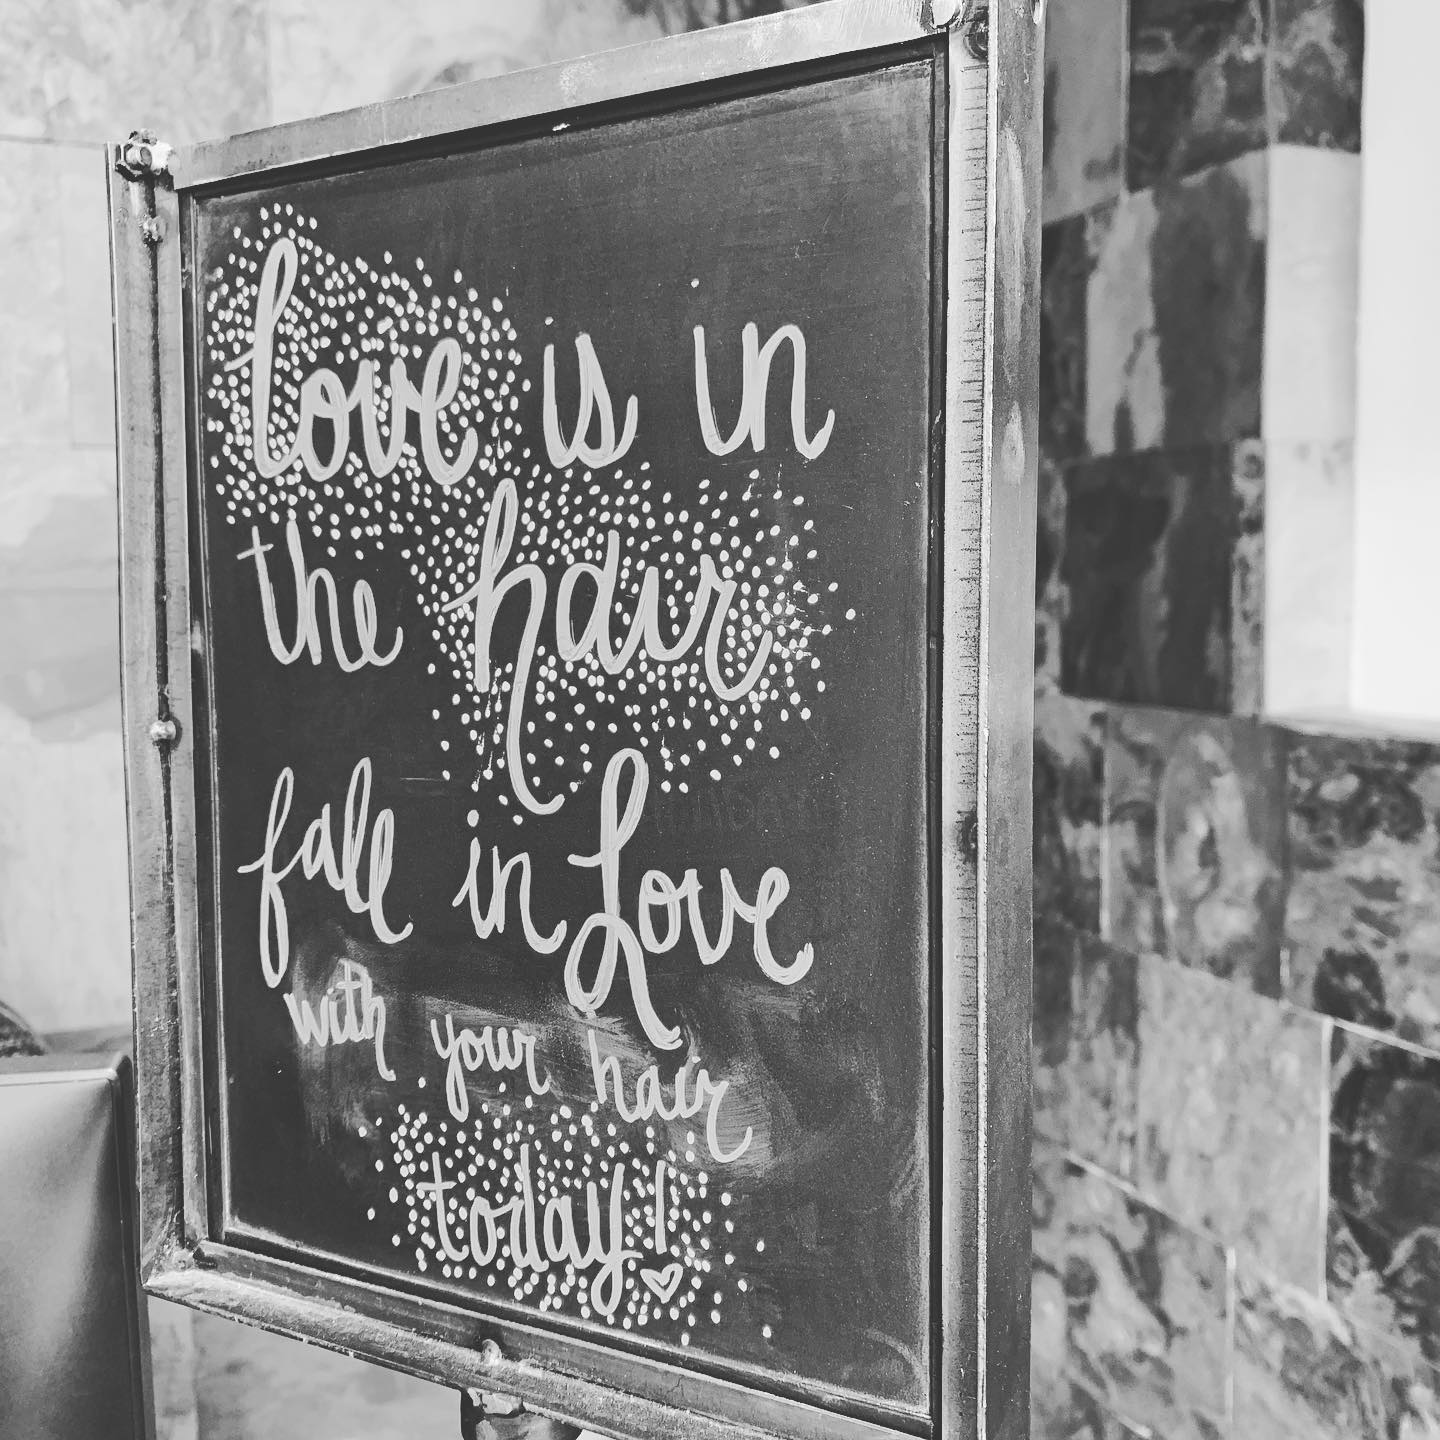 love is in
the hair
fall in Love
with your hair
today!